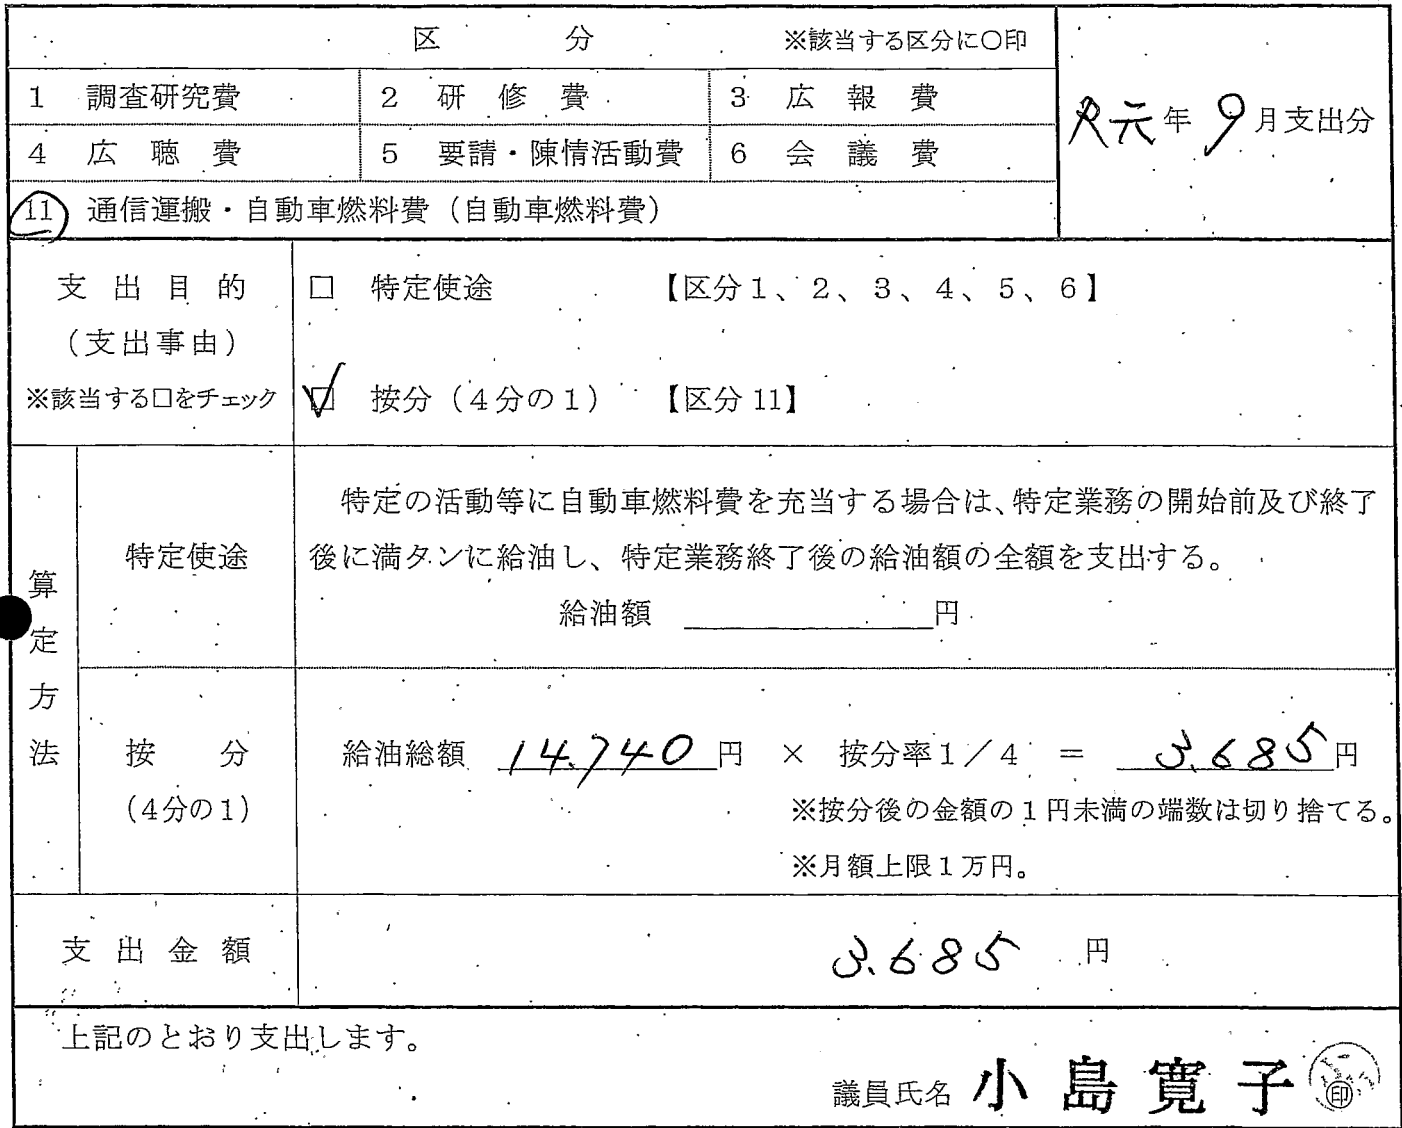 区 分 ※該当する区分に○印
1 調査研究費 2 研修費 3 広報費
R元年 9月支出分
4 広聴費 5 要請・陳情活動費 6 会議費
11 通信運搬・自動車燃料費（自動車燃料費）
支出目的
（支出事由）
※該当する□をチェック
□ 特定使途 【区分1、2、3、4、5、6】
☑ 按分（4分の1） 【区分11】
算定方法
特定使途
特定の活動等に自動車燃料費を充当する場合は、特定業務の開始前及び終了
後に満タンに給油し、特定業務終了後の給油額の全額を支出する。
給油額 円
按分
（4分の1）
給油総額 14,740円 × 按分率1／4 = 3,685円
※按分後の金額の1円未満の端数は切り捨てる。
※月額上限1万円。
支出金額 3,685 円
上記のとおり支出します。
議員氏名 小島寛子 印